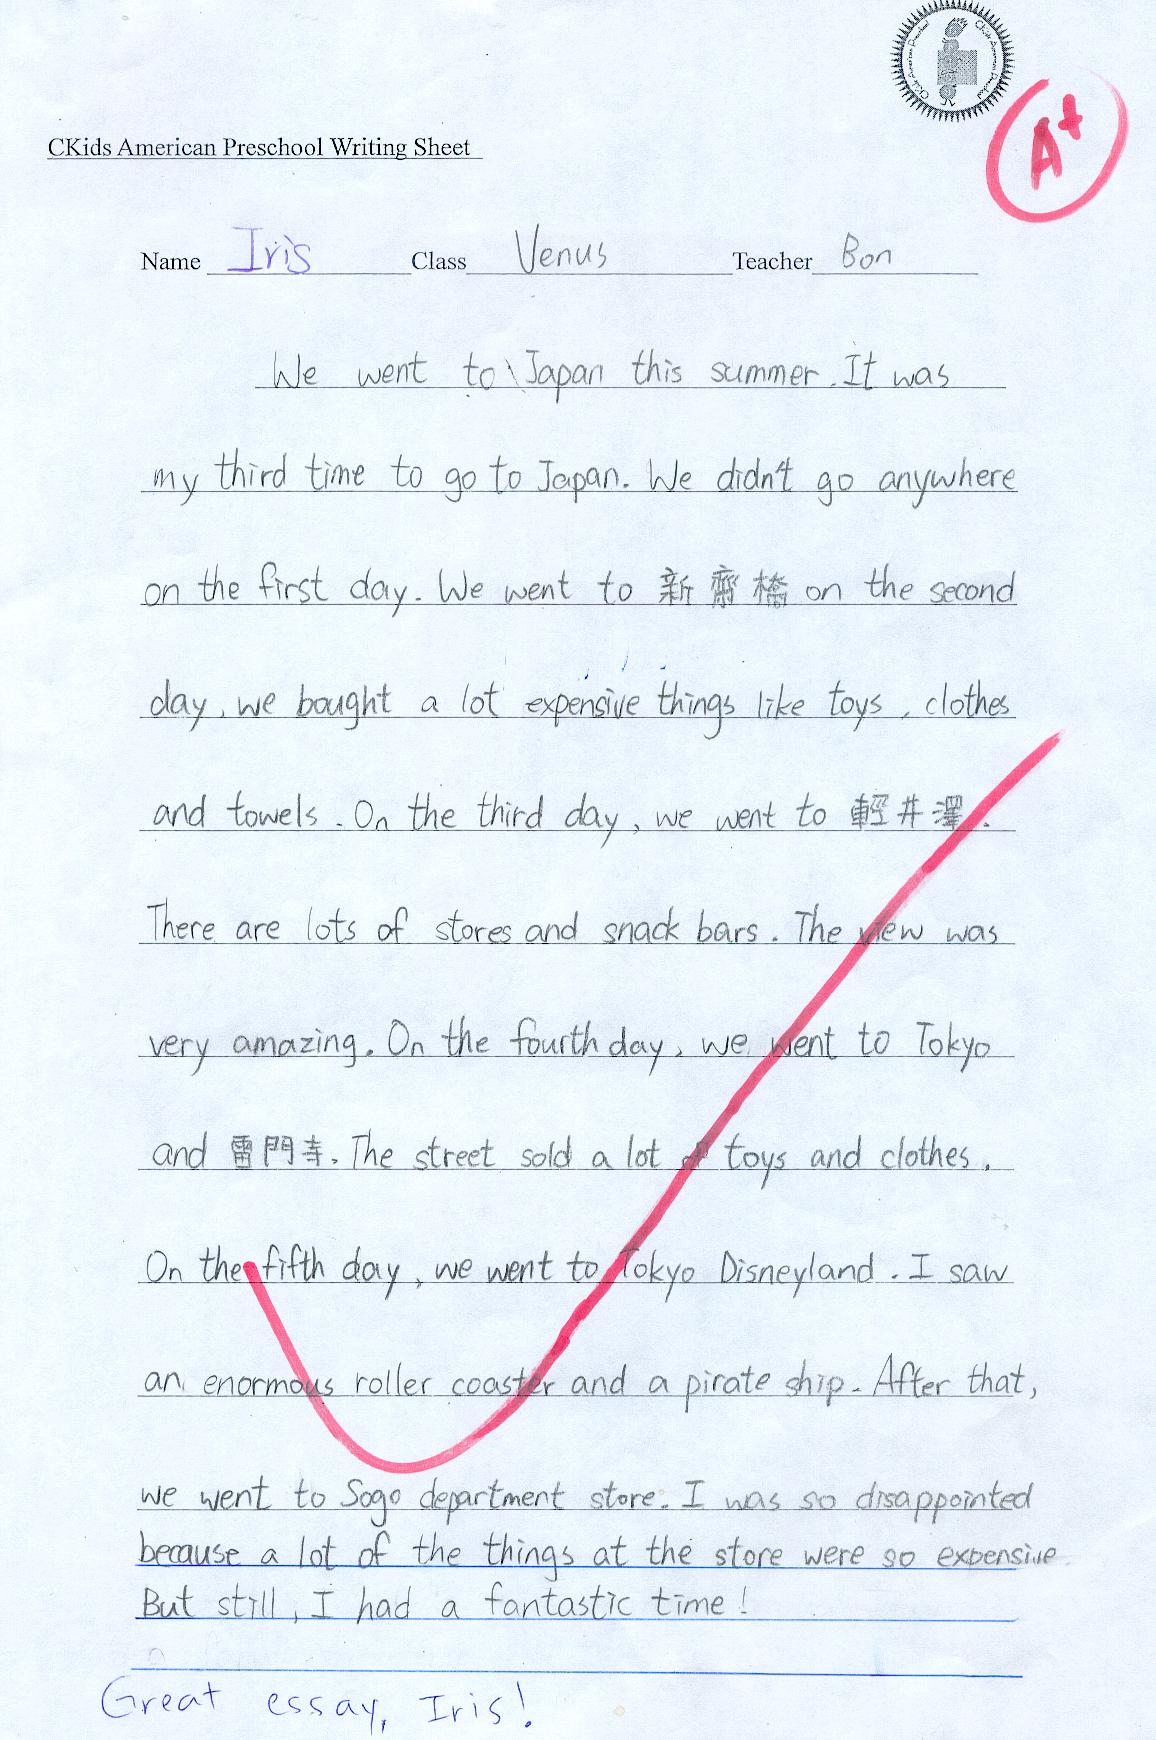 CKids American Preschool
CKids American Preschool
A+
CKids American Preschool Writing Sheet
Name Iris Class Venus Teacher Bon
We went to Japan this summer. It was
my third time to go to Japan. We didn't go anywhere
on the first day. We went to 新齋橋 on the second
day, we bought a lot expensive things like toys, clothes
and towels. On the third day, we went to 輕井澤.
There are lots of stores and snack bars. The view was
very amazing. On the fourth day, we went to Tokyo
and 雷門寺. The street sold a lot of toys and clothes.
On the fifth day, we went to Tokyo Disneyland. I saw
an enormous roller coaster and a pirate ship. After that,
we went to Sogo department store. I was so disappointed
because a lot of the things at the store were so expensive.
But still, I had a fantastic time!
Great essay, Iris!